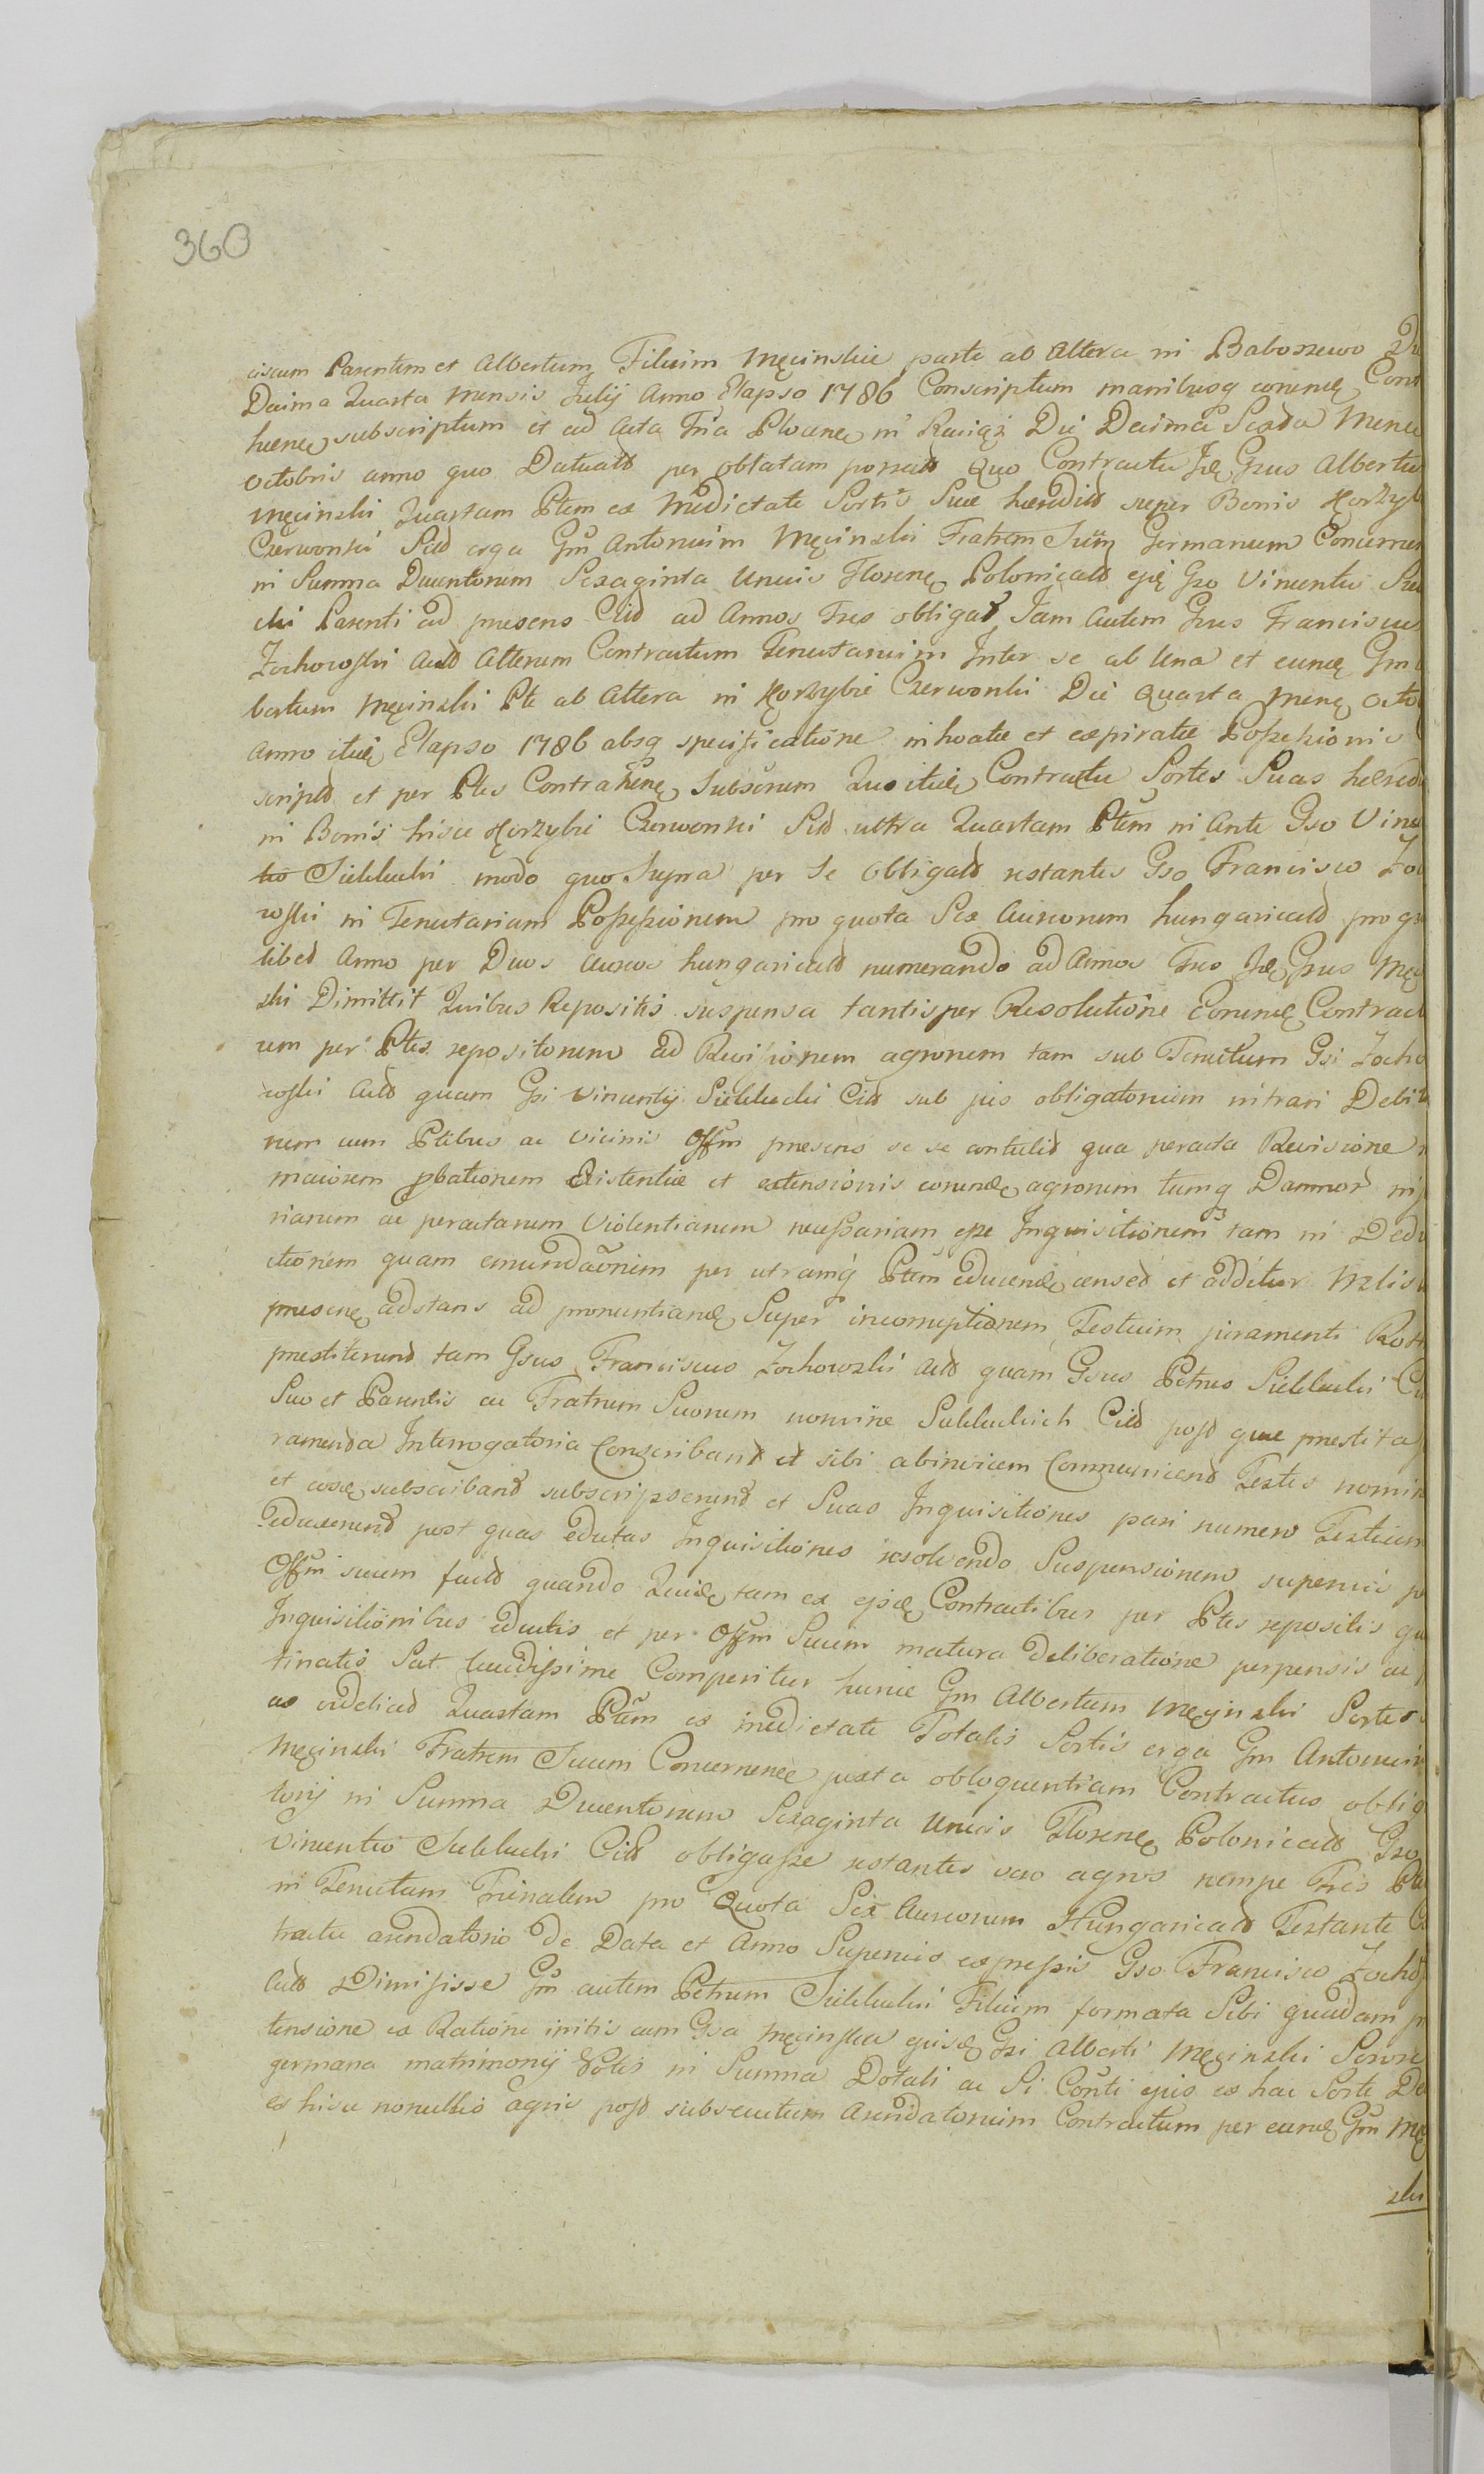 360
ciscum Parentem et Albertum Filium Męcinskie parte ab Altera in Baboszewo Die
Decima Quarta Mensis Julij Anno Elapso 1786 Conscriptum manibusq eorundę Cont
henę subscriptum et ad Acta Tria Plocenę in Raciąż Die Decima Sexta Mense
Octobris anno quo Datuatd per oblatam porrectd Quo Contractu Idę Gsus Albertus
Męcinski Quartam Ptem ex Medietate Sortis Suæ hæreditd super Bonis Korzyb
Czerwonki Sitd erga Gm Antonium Męcinski Fratrem Suũ Germanum Concernen
in Summa Ducentorum Sexaginta Unius Florenę Polonicald ejdę Gso Vincentio
cki Parenti ad presens Citd ad Annos Tres obligat Jam Autem Gsus Franciscus
Zochowski Actd Alterum Contractum Tenutarium Inter se ab Una et eundę Gm
bertum Męcinski Pte ab Altera in Korzybie Czerwonki Die Quarta Menę Octo
Anno itidę Elapso 1786 absq specificatione inhoatæ et expiratæ Possessionis
scriptd et per Ptes Contrahenę Subscrum Quo itidę Contractu Sortes Suas hæred
in Bonis hisce Korzybie Czerwonki Sitd ultra Quartam Ptem in Ante Gso Vincen
tio Siekluchi modo quo Supra per Se Obligatd restantes Gso Francisco Zo
wski in Tenutariam Possessionem pro quota Sex Aureorum hungaricatd pro q
libed Anno per Duos Aureos hungaricatd numerando ad Annos Tres Idę Gsus Męc
ski Dimittit Quibus Repositis suspensa tantisper Resolutione Eorundę Contract
um per Ptes repositorum ad Revisionem agrorum tam sub Tenutam Gsi Zocho
wski Actd quam Gsi Vincentij Siekluchi Citd sub jus obligatorium intrari Debito
rum cum Ptibus ac Vicinis Offm presens se se contulid qua peracta Revisione
maiorem pbationem Existentiæ et extensionis eorundę agrorum tumq Damnord
riarum ac peractarum Violentiarum necessariam esse Inquisitionem tam in Dedu
ctionem quam emundaõnem per utramq Ptem educendę censed et additur Mlis
presenę adstans ad pronuntiandę Super incorruptionem Testium juramenti Rot
prestiterund tam Gsus Franciscus Zochowski Actd quam Gsus Petrus Siekluchi
Suo et Parentis ac Fratrum Suorum nomine Siekluchich Citd post quæ prestita
ramenda Interrogatoria Conscriband et sibi abinvicem Communicand Testes nomin
et eosdę subscriband subscripserund et Suas Inquisitiones pari numero Testium
eduxerund post quas eductas Inquisitiones resolvendo Suspensionem superius
Offm suum facto quando Quidę tam ex ejsdę Contractibus per Ptes repositis
Inquisitionibus eductis et per Offm Suum matura Deliberatione perpensis ac
tinatis Sat lucidissime Comperitur hunc Gm Albertum Męcinski Sortes
as videlicd Quartam Ptem ex medietate Totalis Sortis erga Gm Antonium
Męcinski Fratrem Suum Concernenee juxta obloquentiam Contractus oblig
torij in Summa Ducentorum Sexaginta Unius Florenę Polonicatd Gso
Vincentio Siekluchi Citd obligasse restantes vero agros nempe Tres
in Tenutam Trienalem pro Quota Sex Aureorum Hungaricatd Testante
tractu arendatorio De Data et Anno Superius expressis Gso Francisco Zocho
Actd Dimisisse Gm autem Petrum Siekluchi Filium formata Sibi quadam
tensione ex Ratione initis cum Gsa Męcinska ejusdę Gsi Alberti Męcinski Sorore
germana matrimonij Votis in Summa Dotali ac Si Conti ejus ex hac Sorte
ex hisce nonullis agris post subsecutum Arendatorium Contractum per eundę Gm Mę
ski